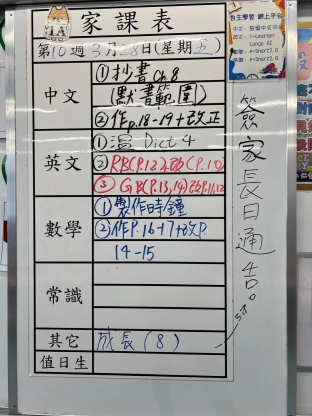 1A
家課表
自主學習 網上平台
第10週3月28日(星期五)
中文
①抄書Ch.8
(默書範圍)
②作p.18-19+改正
英文
①溫Dict 4
②RB(P.12)+改(P.10)
③GB(P.13,14)改P.11,12
數學
①製作時鐘
②作P.16-17+改P.
14-15
常識
其它
成長(8)
值日生
簽家長日通告。